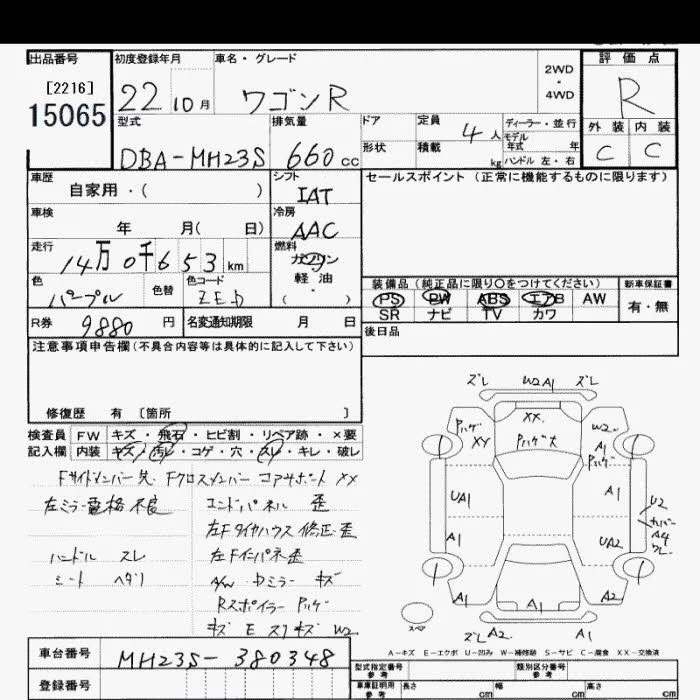 出品番号 初度登録年月 車名・グレード 2WD・4WD 評価点
[2216]
15065 22 10月 ワゴンR R
型式 排気量 ドア 定員 4人 ディーラー・並行 外装 内装
モデル年式 年
形状 積載 kg ハンドル 左・右 C C
DBA-MH23S 660cc
車歴 シフト セールスポイント(正常に機能するものに限ります)
自家用・( ) IAT
車検 冷房
年 月( 日) AAC
走行 燃料
14万0千653km ガソリン
色 色替 色コード 軽油・ 装備品(純正品に限り〇をつけてください) 新車保証書
パープル ZED ( ) PS PW ABS エアB AW 有・無
SR ナビ TV カワ
R券 9880円 名変通知期限 月 日 後日品
注意事項申告欄(不具合内容等は具体的に記入して下さい)
修復歴 有 [箇所 ]
検査員 FW キズ・飛石・ヒビ割・リペア跡・×要
記入欄 内装 キズ・汚レ・コゲ・穴・スレ・キレ・破レ
Fサイドメンバー先 Fクロスメンバー コアサポート XX
左ミラー電格不良 エンドパネル 歪
左Fタイヤハウス 修正歪
ハンドル スレ 左Fインパネ歪
シート ヘタリ A/W Dミラー キズ
Rスポイラー Pハゲ
キズ E スリキズ W2
ズレ W2A1 ズレ
Pハゲ XX W2
XY Pハゲ大 A1
Pハゲ
UA1 A1 U2
カバー
A1 UA2 A4
ワレ
A1 A1 A2
スペア ズレ A2 A1
A-キズ E-エクボ U-凹み W-補修跡 S-サビ C-腐食 XX-交換済
車台番号 MH23S-380348
登録番号 型式指定番号 参考 類別区分番号 参考
車庫証明用 参考 長さ cm 幅 cm 高さ cm